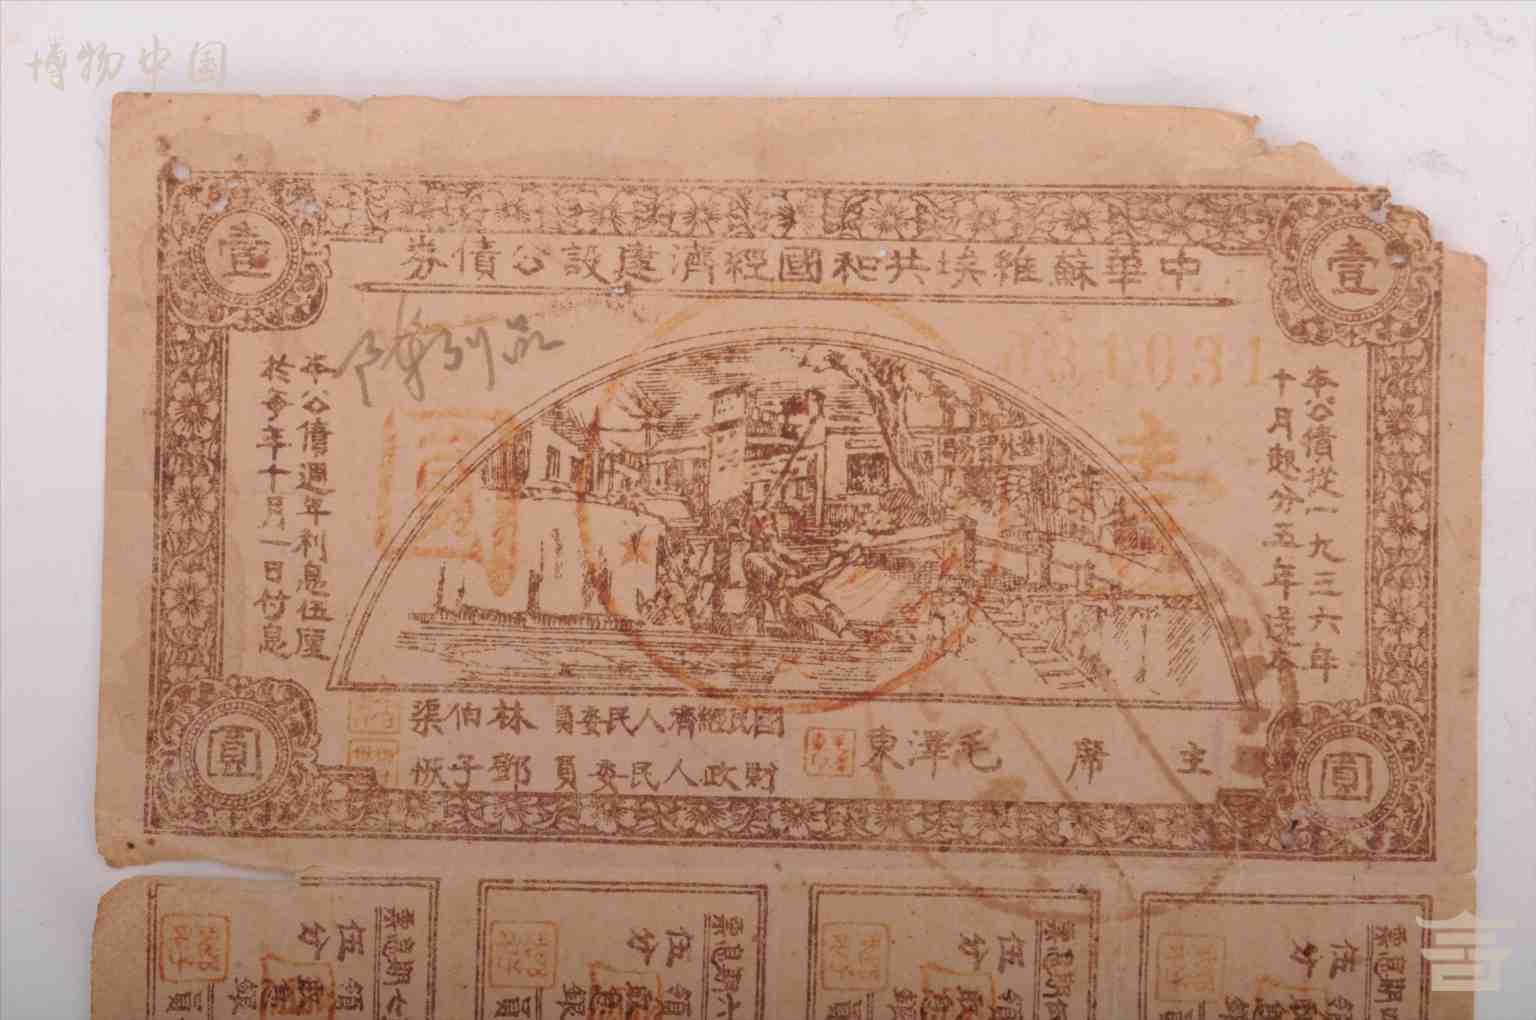 博物中国
中華蘇維埃共和國經濟建設公債券
壹
壹
031031
壹
圓
本公債從一九三六年
十月起分五年還本
本公債週年利息伍厘
於每年十月一日付息
主席 毛澤東
國民經濟人民委員 林伯渠
財政人民委員 鄧子恢
圓
圓
票息期
伍分
票息期
伍分 領
票息期六
伍分 領
票息期七
伍分 領